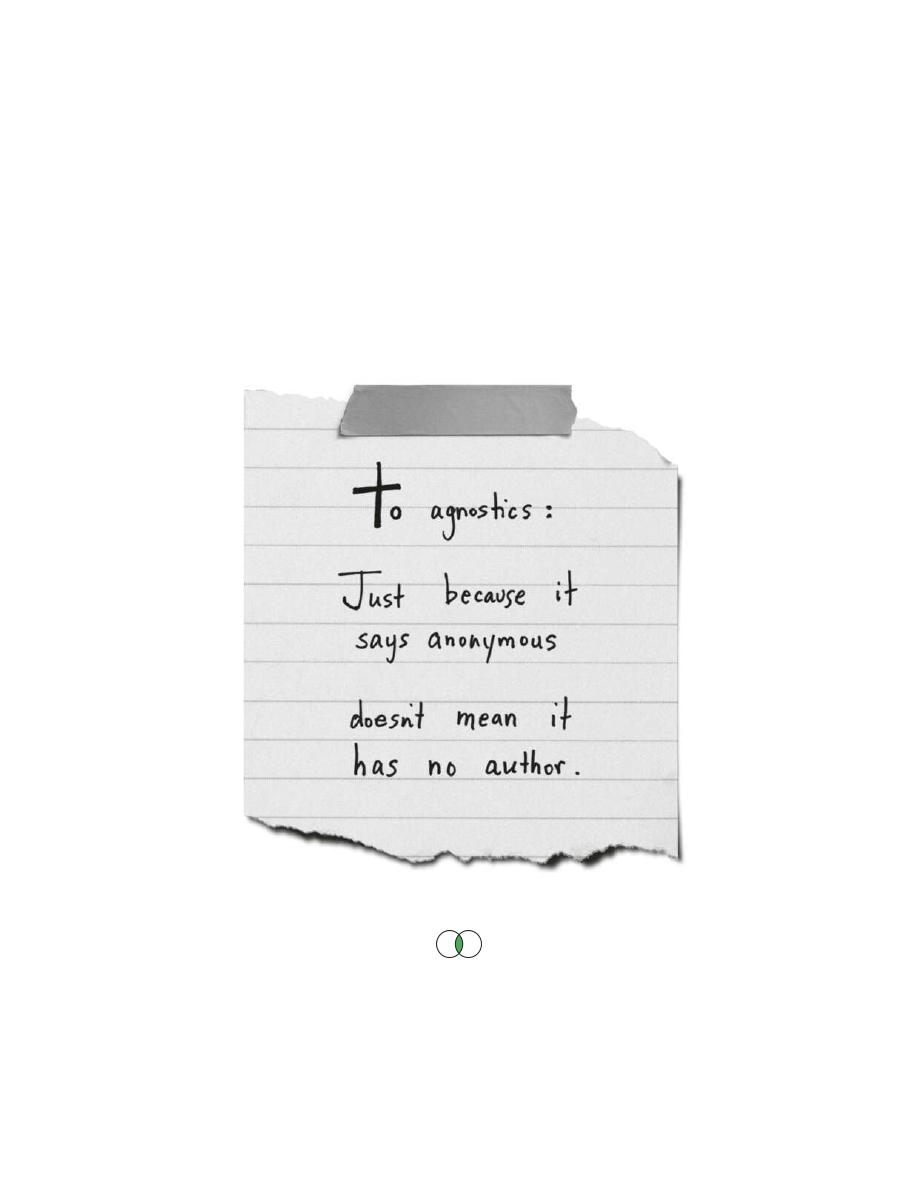 To agnostics:
Just because it
says anonymous
doesn't mean it
has no author.